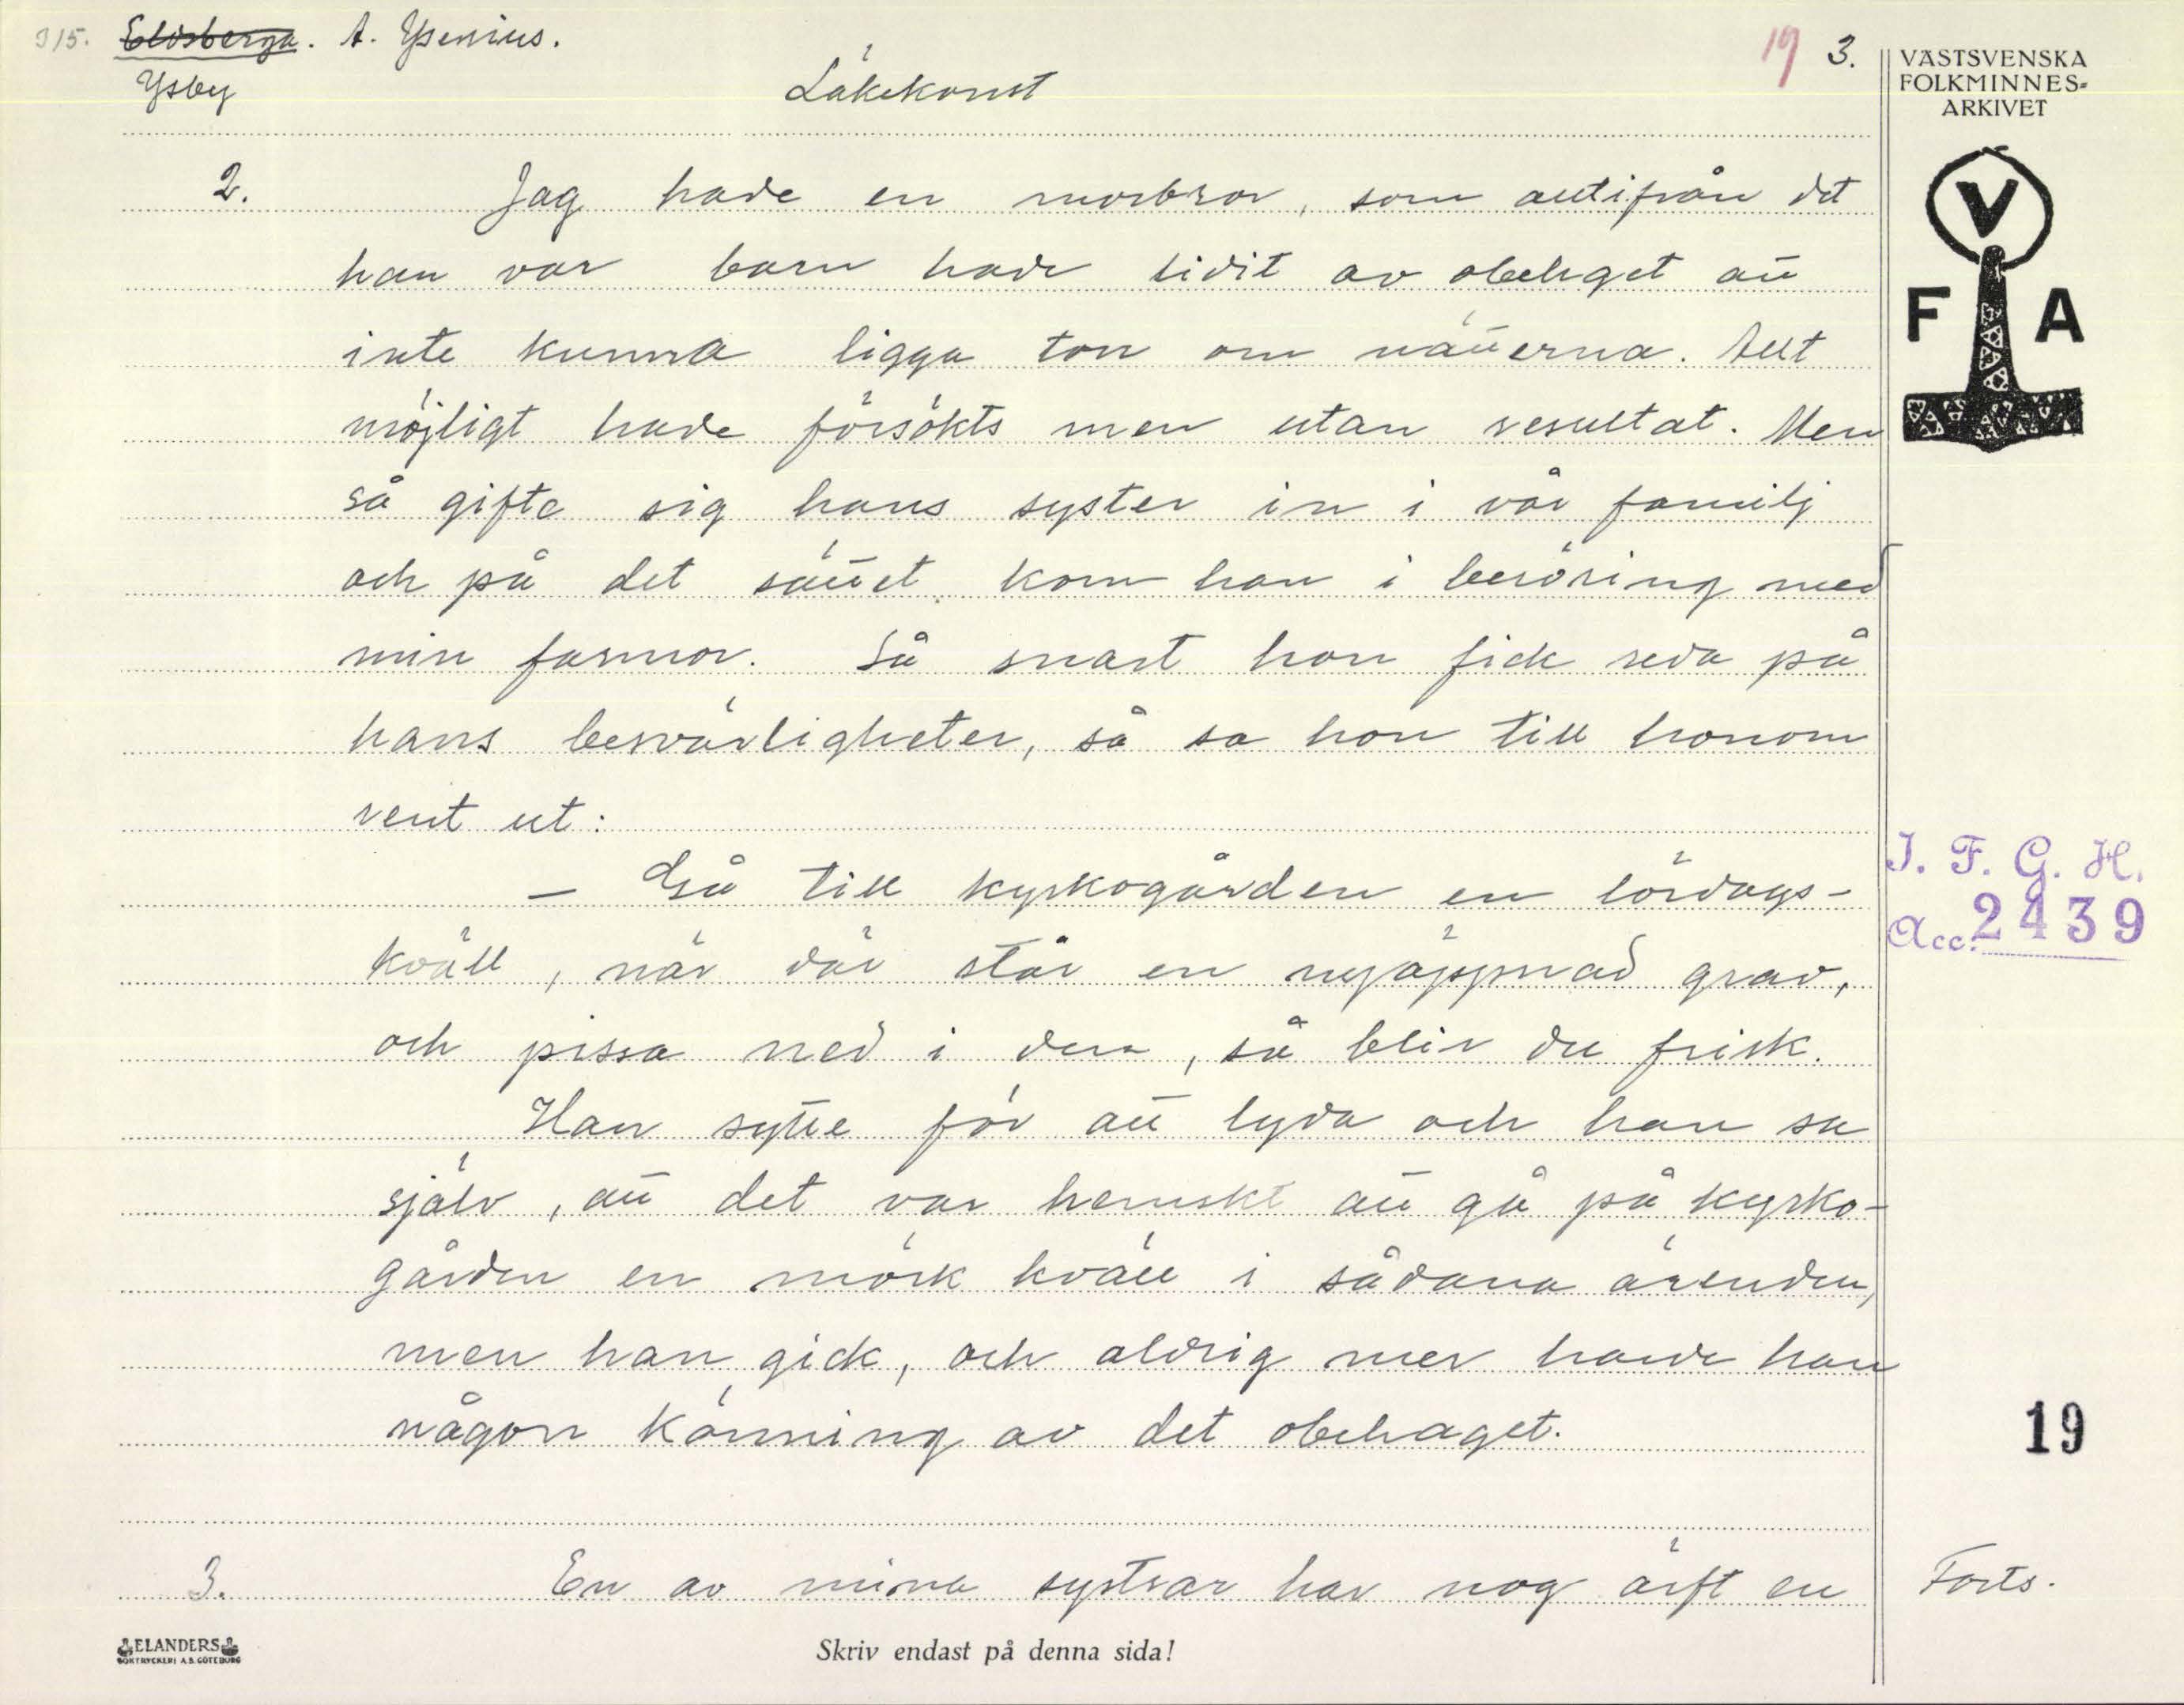 315. Eldsberga. A. Ysenius. 19 3.
Ysby Läkekonst
VÄSTSVENSKA
FOLKMINNES-
ARKIVET
V
F A
2. Jag hade en morbror, som alltifrån det
han var barn hade lidit av obehaget att
inte kunna ligga torr om nätterna. Allt
möjligt hade försökts men utan resultat. Men
så gifte sig hans syster in i vår familj
och på det sättet kom han i beröring med
min farmor. Så snart hon fick reda på
hans besvärligheter, så sa hon till honom
rent ut:
– Gå till kyrkogården en lördags-
kväll, när där står en nyöppnad grav,
och pissa ned i den, så blir du frisk.
Han sytte för att lyda och han sa
själv, att det var hemskt att gå på kyrko-
gården en mörk kväll i sådana ärenden,
men han gick, och aldrig mer hade han
någon känning av det obehaget.
I. F. G. H.
Acc. 2439
19
3. En av mina systrar har nog ärft en
Forts.
ELANDERS
BOKTRYCKERI A.B. GÖTEBORG
Skriv endast på denna sida!